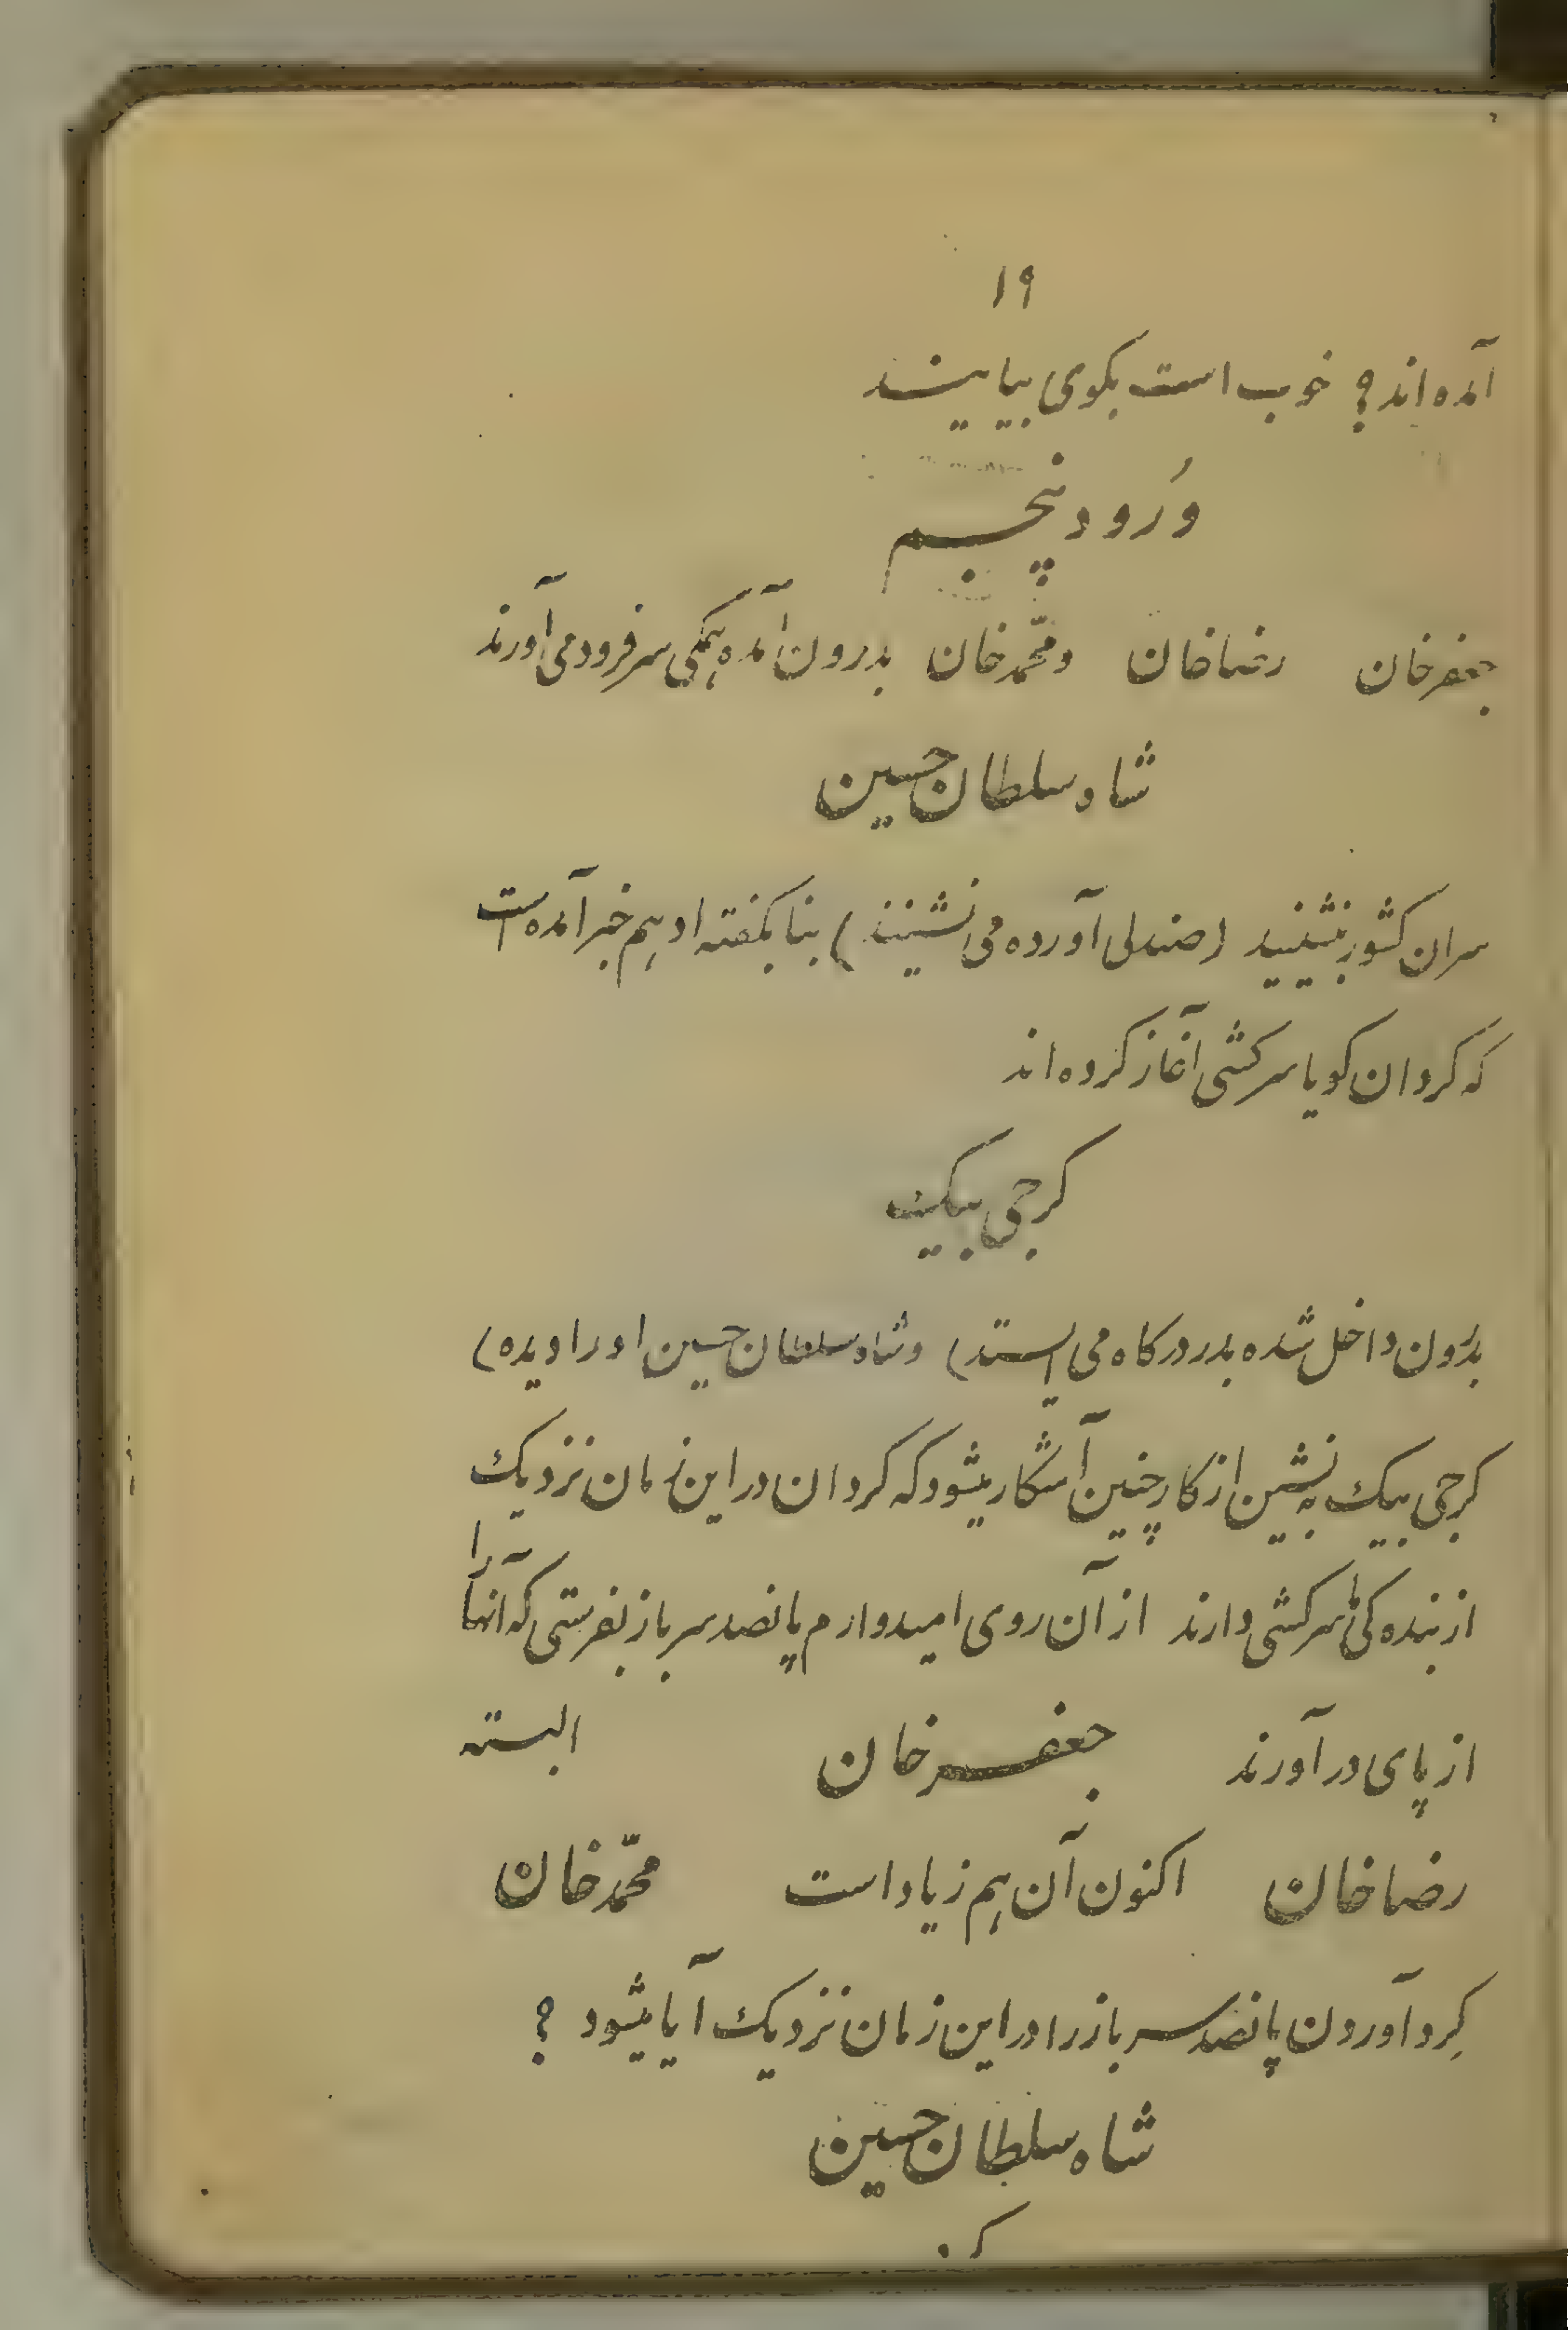 ۱۹
آمده‌اند؟ خوب است بکوی بیایند
وُرود پنجم
جعفرخان رضاخان و محمّدخان بدرون آمده همکی سرفرود می‌آورند
شاه سلطان حسین
سران کشور بنشینید (صندلی آورده می‌نشینند) بنا بکفته او هم خبر آمده است
که کردان کویا سرکشی آغاز کرده‌اند
کرجی بیک
بدرون داخل شده بدر درکاه می‌ایستد) و شاه سلطان حسین او را دیده)
کرجی بیک به نشین از کار چنین آشکار میشود که کردان در این زمان نزدیک
از بنده‌کی سرکشی دارند از آن روی امیدوارم پانصد سرباز بفرستی که آنها را
از پای در آورند جعفرخان البته
رضاخان اکنون آن هم زیاد است محمّدخان
کِرد آوردن پانصد سرباز را در این زمان نزدیک آیا میشود ؟
شاه سلطان حسین